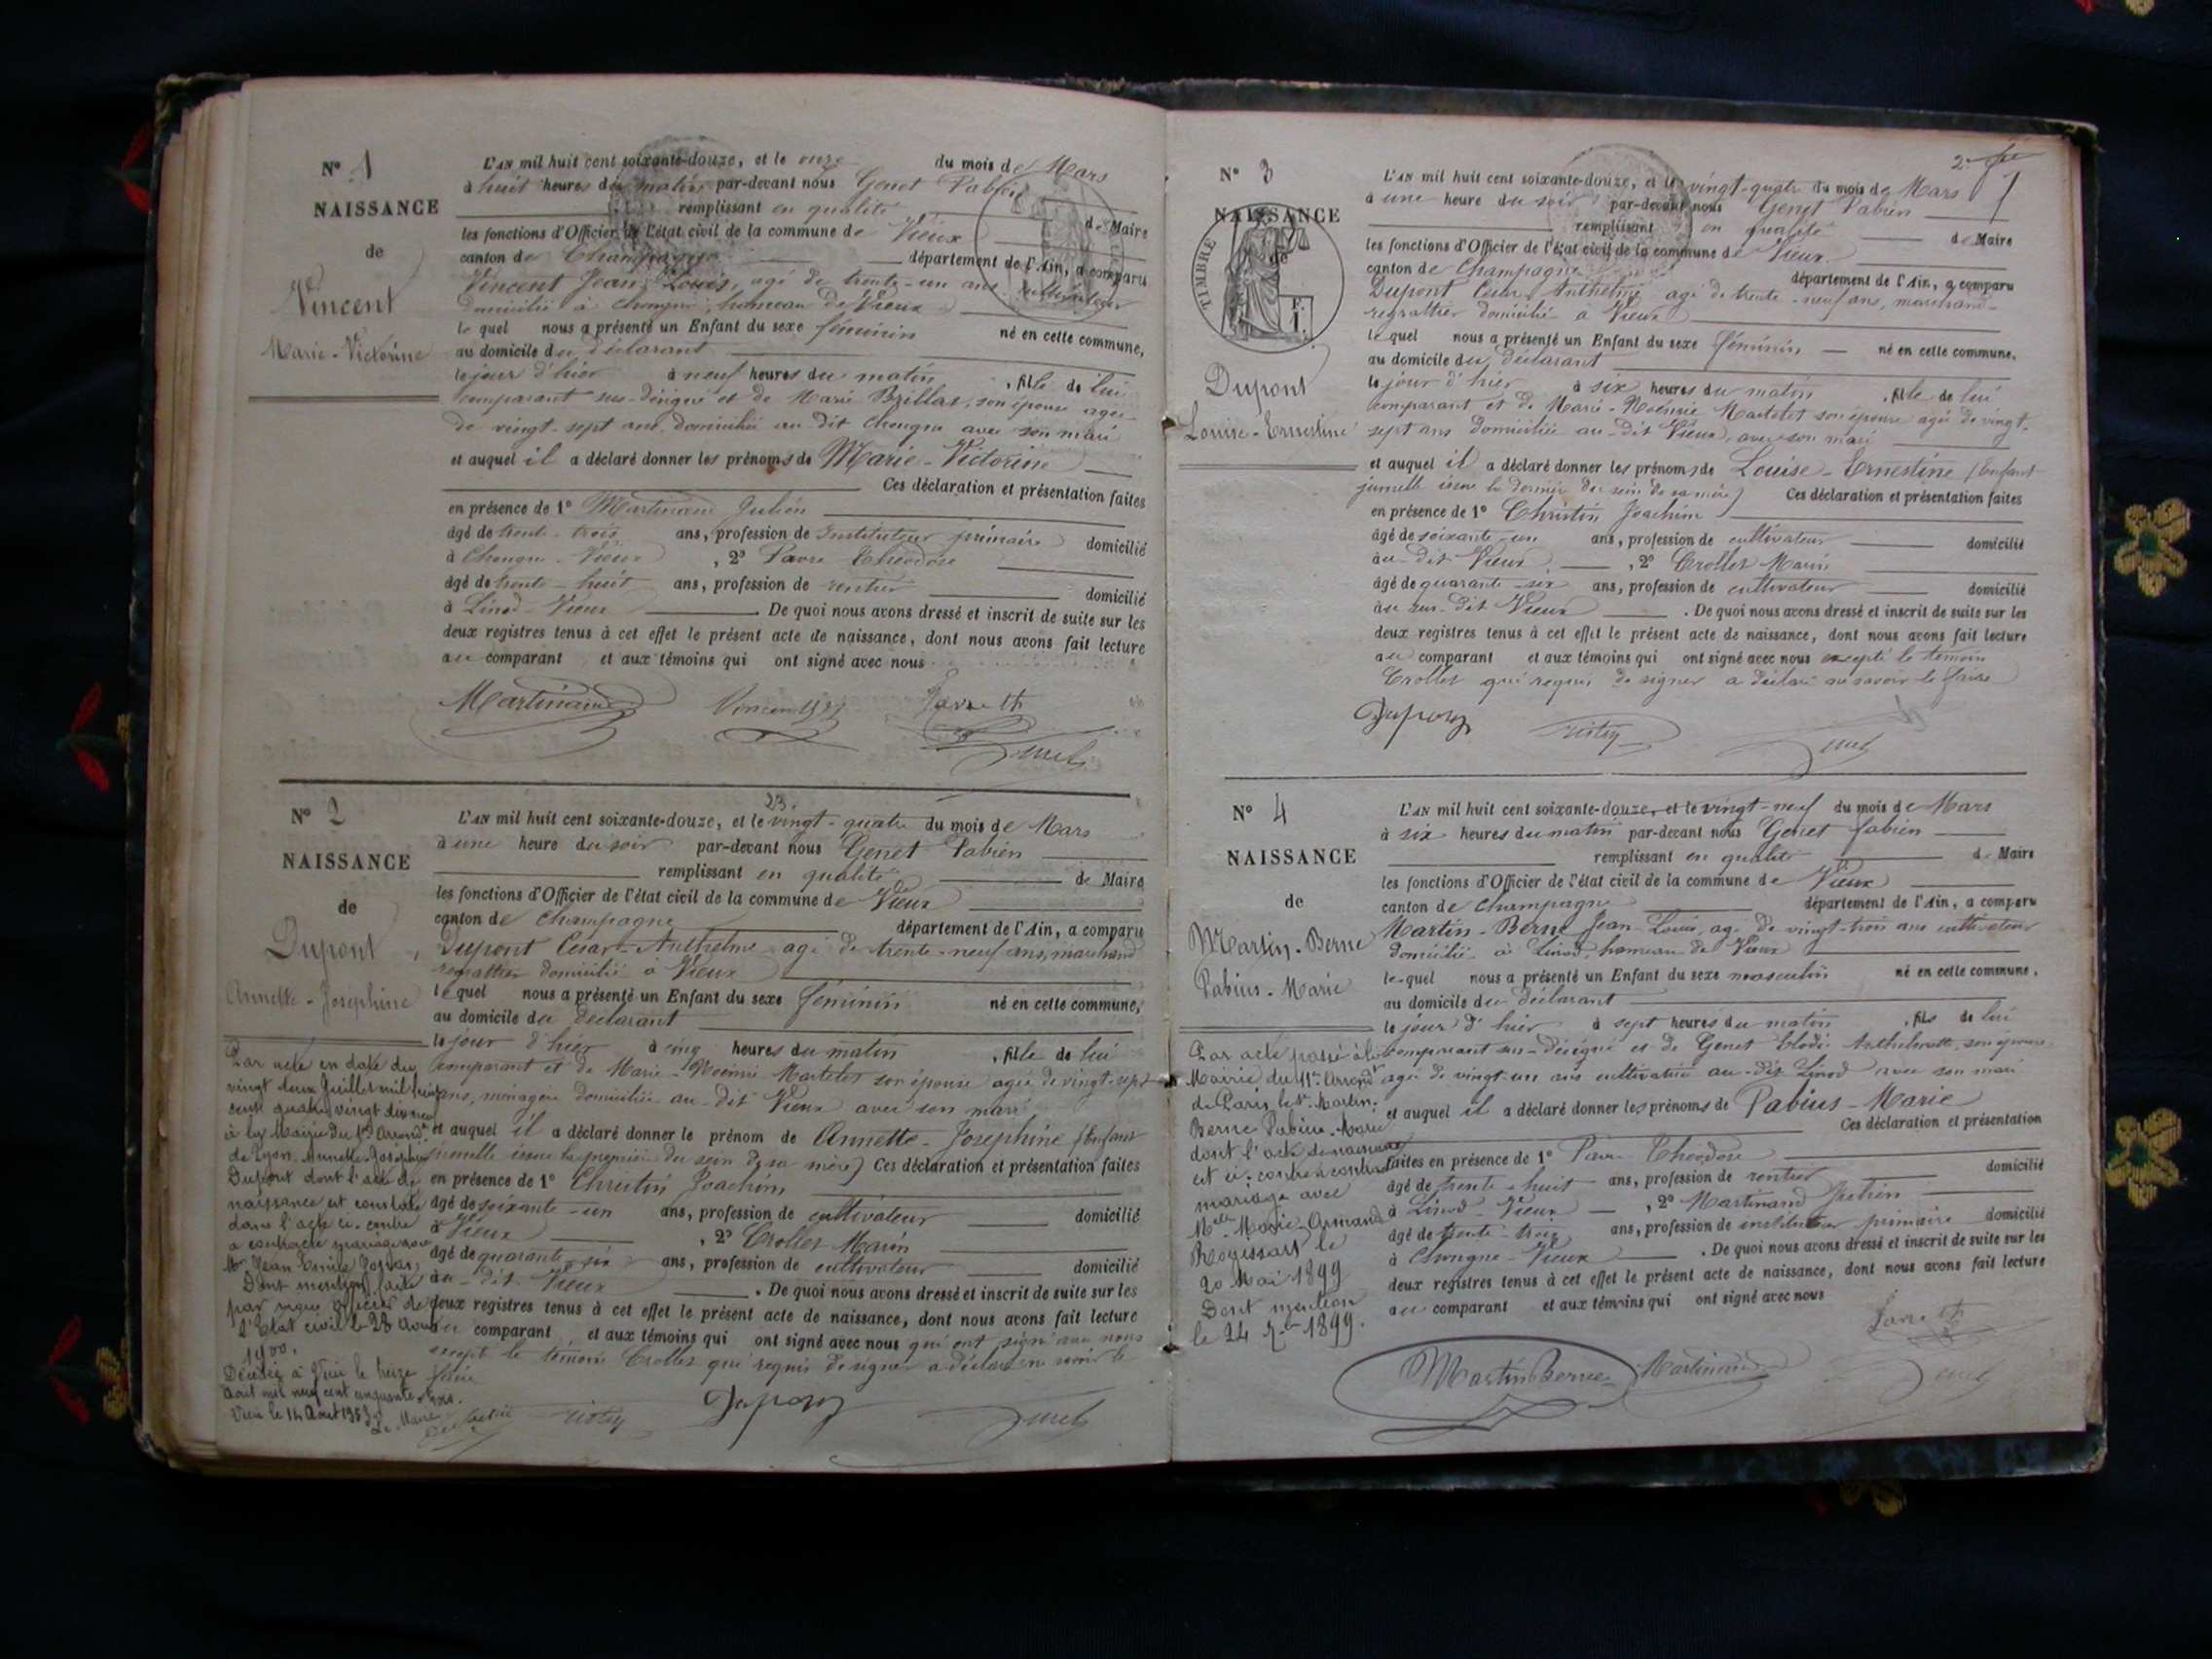 N° 1
NAISSANCE
de
Vincent
Marie-Victorine
L'AN mil huit cent soixante-douze, et le onze du mois de Mars
à huit heures du matin par-devant nous Genet Fabien
remplissant en qualité de Maire
les fonctions d'Officier de l'état civil de la commune de Vieux
canton de Champagne département de l'Ain, a comparu
Vincent Jean-Louis, agé de trente-un ans cultivateur
domicilié à Chongne, hameau de Vieux
le quel nous a présenté un Enfant du sexe féminin né en cette commune,
au domicile du déclarant
le jour d'hier à neuf heures du matin, fille de lui
comparant sus-désigné et de Marie Brillat, son épouse agée
de vingt-sept ans domiciliée au dit Chongne avec son mari
et auquel il a déclaré donner les prénoms de Marie-Victorine
Ces déclaration et présentation faites
en présence de 1° Martinand Julien
âgé de trente-trois ans, profession de Instituteur primaire domicilié
à Chongne-Vieux, 2° Favre Théodore
âgé de trente-huit ans, profession de rentier domicilié
à Linod-Vieux. De quoi nous avons dressé et inscrit de suite sur les
deux registres tenus à cet effet le présent acte de naissance, dont nous avons fait lecture
au comparant et aux témoins qui ont signé avec nous
Martinand Favre Th Genet
N° 2
NAISSANCE
de
Dupont
Annette-Josephine
23.
L'AN mil huit cent soixante-douze, et le vingt-quatre du mois de Mars
à une heure du soir par-devant nous Genet Fabien
remplissant en qualité de Maire
les fonctions d'Officier de l'état civil de la commune de Vieux
canton de Champagne département de l'Ain, a comparu
Dupont César-Anthelme agé de trente-neuf ans, marchand
regrattier domicilié à Vieux
le quel nous a présenté un Enfant du sexe féminin né en cette commune,
au domicile du déclarant
le jour d'hier à cinq heures du matin, fille de lui
comparant et de Marie-Noémie Martelet son épouse agée de vingt-sept
ans, ménagère domiciliée au dit Vieux avec son mari
et auquel il a déclaré donner le prénom de Annette-Josephine (Enfant
jumelle issue la première du sein de sa mère) Ces déclaration et présentation faites
en présence de 1° Christin Joachim
âgé de soixante-un ans, profession de cultivateur domicilié
à Vieux, 2° Crollet Marin
âgé de quarante-six ans, profession de cultivateur domicilié
au-dit Vieux. De quoi nous avons dressé et inscrit de suite sur les
deux registres tenus à cet effet le présent acte de naissance, dont nous avons fait lecture
au comparant, et aux témoins qui ont signé avec nous qui ont signé avec nous
excepté le témoin Crollet qui requis de signer a déclaré ne savoir le
faire
Par acte en date du
vingt deux Juillet mil huit
cent quatre vingt dix neuf
à la Mairie du Arrond.t
de Lyon, Annette-Josephine
Dupont dont l'acte de
naissance est constaté
dans l'acte ci-contre
a contracté mariage avec
Mr Jean
Dont mention faite
par nous officier de
l'Etat civil le 23 Avril
1900.
Décédée à Vieu le treize
Août mil neuf cent cinquante trois.
Vieu le 14 Août 1953
Le Maire
Dupont Genet
N° 3
NAISSANCE
de
TIMBRE
F.
1.
Dupont
Louise-Ernestine
L'AN mil huit cent soixante-douze, et le vingt-quatre du mois de Mars
à une heure du soir par-devant nous Genet Fabien
remplissant en qualité de Maire
les fonctions d'Officier de l'état civil de la commune de Vieux
canton de Champagne département de l'Ain, a comparu
Dupont César Anthelme agé de trente-neuf ans, marchand
regrattier domicilié à Vieux
le quel nous a présenté un Enfant du sexe féminin né en cette commune.
au domicile du déclarant
le jour d'hier à six heures du matin, fille de lui
comparant et de Marie-Noémie Martelet son épouse agée de vingt-
sept ans domiciliée au-dit Vieux, avec son mari
et auquel il a déclaré donner les prénoms de Louise-Ernestine (Enfant
jumelle issue la dernière du sein de sa mère) Ces déclaration et présentation faites
en présence de 1° Christin Joachim
âgé de soixante-un ans, profession de cultivateur domicilié
au-dit Vieux, 2° Crollet Marin
âgé de quarante-six ans, profession de cultivateur domicilié
au sus-dit Vieux. De quoi nous avons dressé et inscrit de suite sur les
deux registres tenus à cet effet le présent acte de naissance, dont nous avons fait lecture
au comparant et aux témoins qui ont signé avec nous excepté le témoin
Crollet qui requis de signer a déclaré ne savoir le faire
Dupont Genet
N° 4
NAISSANCE
de
Martin-Berne
Fabius-Marie
L'AN mil huit cent soixante-douze, et le vingt-neuf du mois de Mars
à six heures du matin par-devant nous Genet Fabien
remplissant en qualité de Maire
les fonctions d'Officier de l'état civil de la commune de Vieux
canton de Champagne département de l'Ain, a comparu
Martin-Berne Jean-Louis, agé de vingt-trois ans cultivateur
domicilié à Linod, hameau de Vieux
le quel nous a présenté un Enfant du sexe masculin né en cette commune,
au domicile du déclarant
le jour d'hier à sept heures du matin, fils de lui
comparant sus-désigné et de Genet Elodie Anthelmette, son épouse
agée de vingt-un ans cultivatrice au-dit Linod avec son mari
et auquel il a déclaré donner les prénoms de Fabius-Marie
Ces déclaration et présentation
faites en présence de 1° Favre Théodore
âgé de trente-huit ans, profession de rentier domicilié
à Linod Vieux, 2° Martinand Julien
âgé de trente-trois ans, profession de instituteur primaire domicilié
à Chongne-Vieux. De quoi nous avons dressé et inscrit de suite sur les
deux registres tenus à cet effet le présent acte de naissance, dont nous avons fait lecture
au comparant et aux témoins qui ont signé avec nous
Par acte passé à la
Mairie du 11e Arrondt
de Paris, le Sr Martin-
Berne Fabius-Marie
dont l'acte de naissance
est ci-contre a contracté
mariage avec
Melle Marie
le
20 Mai 1899
Dont mention
le 24 7bre 1899.
Favre Th
Martin Berne Martinand Genet